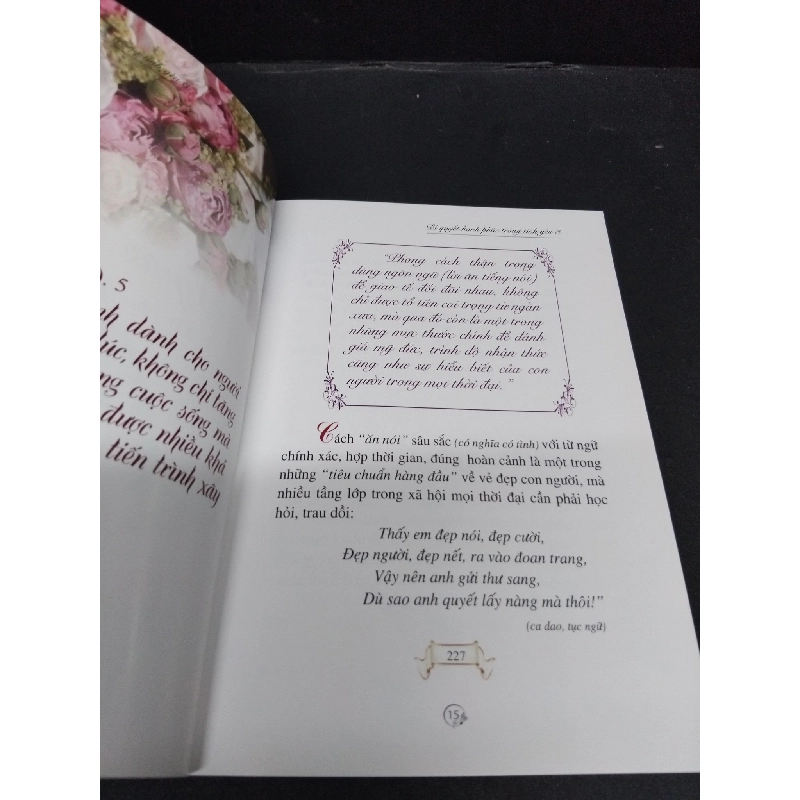 . 5
nh dành cho người
húc, không chỉ tăng
ng cuộc sống mà
được nhiều khả
tiến trình xây
Bí quyết hạnh phúc trong tình yêu
"Phong cách thận trọng
dùng ngôn ngữ (lời ăn tiếng nói)
để giao tế đối đãi nhau, không
chỉ được tổ tiên coi trọng từ ngàn
xưa, mà qua đó còn là một trong
những mực thước chính để đánh
giá mỹ đức, trình độ nhận thức
cũng như sự hiểu biết của con
người trong mọi thời đại."
Cách "ăn nói" sâu sắc (có nghĩa có tình) với từ ngữ
chính xác, hợp thời gian, đúng hoàn cảnh là một trong
những "tiêu chuẩn hàng đầu" về vẻ đẹp con người, mà
nhiều tầng lớp trong xã hội mọi thời đại cần phải học
hỏi, trau dồi:
Thấy em đẹp nói, đẹp cười,
Đẹp người, đẹp nết, ra vào đoan trang,
Vậy nên anh gửi thư sang,
Dù sao anh quyết lấy nàng mà thôi!"
(ca dao, tục ngữ)
227
15